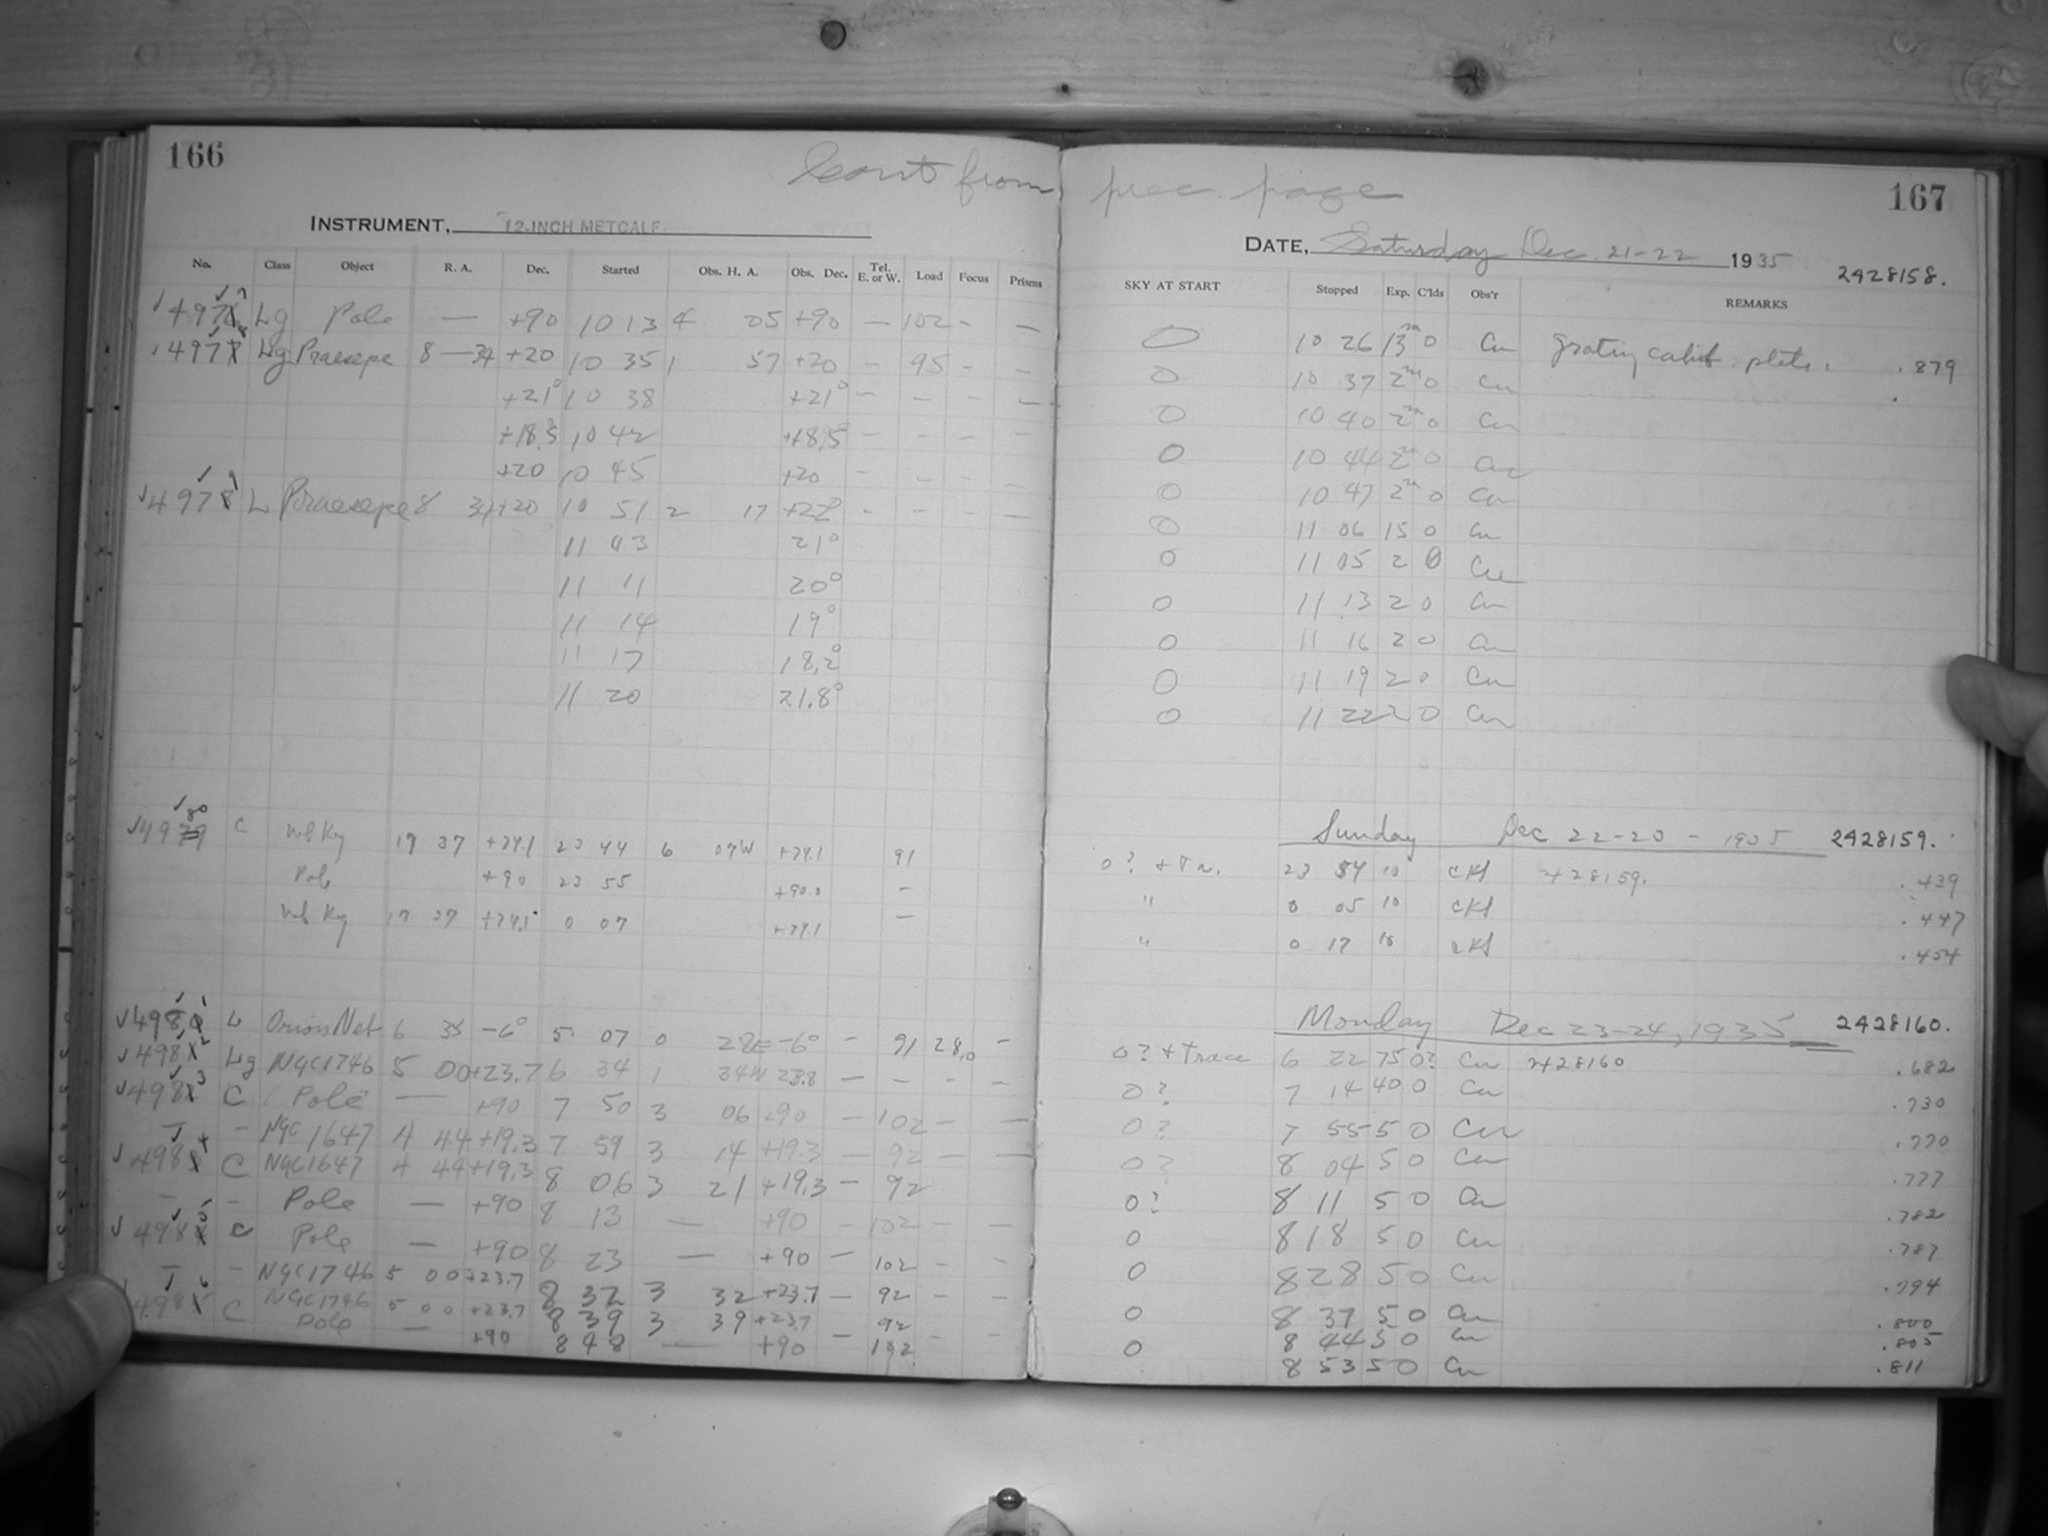 166
Cont from prec. page
167
INSTRUMENT, 12-INCH METCALF
DATE, Saturday Dec. 21-22 1935 2428158.
No. Class Object R. A. Dec. Started Obs. H. A. Obs. Dec. Tel. E. or W. Load Focus Prisms
SKY AT START Stopped Exp. C'lds Obs'r REMARKS
Lg Pole — +90 10 13 4 05 +90 — 102 - — 0 10 26 13m 0 Cu grating calib. plate. .879
Lg Praesepe 8 — 34 +20 10 35 1 57 +20 - 95 - - 0 10 37 2m 0 Cu
+21° 10 38 +21° - - - - 0 10 40 2m 0 Cu
+18.5 10 42 +18.5 - - - - 0 10 44 2m 0 Cu
+20 10 45 +20 - - - - 0 10 47 2m 0 Cu
L Praesepe 8 34 +20 10 51 2 17 +22° - - - - 0 11 06 15 0 Cu
11 03 21° 0 11 05 2 0 Cu
11 11 20° 0 11 13 2 0 Cu
11 14 19° 0 11 16 2 0 Cu
11 17 18.2° 0 11 19 2 0 Cu
11 20 21.8° 0 11 22 2 0 Cu
Sunday 2428159.
C 23 44 6 91 0? + Tr. 23 54 10 2428159. .439
Pole +90 23 55 +90.0 - " 0 05 10 .447
0 07 - " 0 17 10 .454
Monday Dec 23-24, 1935 2428160.
L Orion Neb -6° 5 07 0 28E -6° - 91 28.0 - 0? + Trace 6 22 75 0? Cu 2428160 .682
Lg NGC1746 5 00 +23.7 6 34 1 34W 23.8 — - - - 0? 7 14 40 0 Cu .730
C Pole — +90 7 50 3 06 +90 - 102 - - 0? 7 55 5 0 Cu .770
- - NGC 1647 4 44 +19.3 7 59 3 14 +19.3 - 92 - - 0? 8 04 5 0 Cu .777
C NGC1647 4 44 +19.3 8 06 3 21 +19.3 - 92 0? 8 11 5 0 Cu .782
- - Pole — +90 8 13 — +90 - 102 - - 0 8 18 5 0 Cu .787
C Pole — +90 8 23 — +90 - 102 - - 0 8 28 5 0 Cu .794
- - NGC1746 5 00 +23.7 8 32 3 32 +23.7 - 92 - - 0 8 37 5 0 Cu .800
C NGC1746 5 00 +23.7 8 39 3 39 +23.7 92 8 44 5 0 Cu .805
Pole — +90 8 48 — +90 - 102 - - 0 8 53 5 0 Cu .811